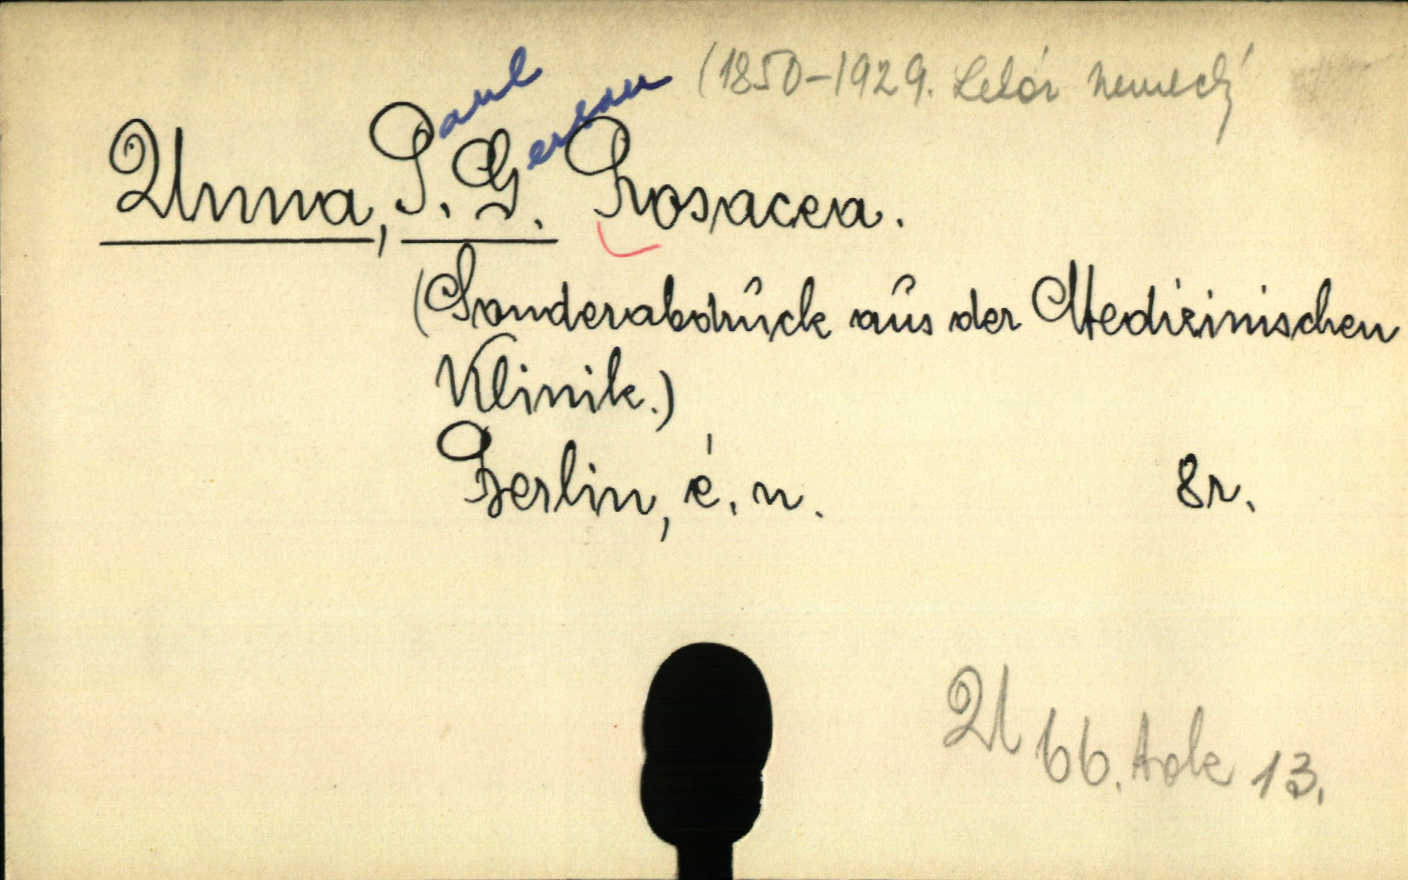 Paul Gerson (1850-1929. Lekár nemecký
Unna, P. G. Rosacea.
(Sonderabdrück aus der Medizinischen
Klinik.)
Berlin, é. n. 8r.
U 66. tok 13.